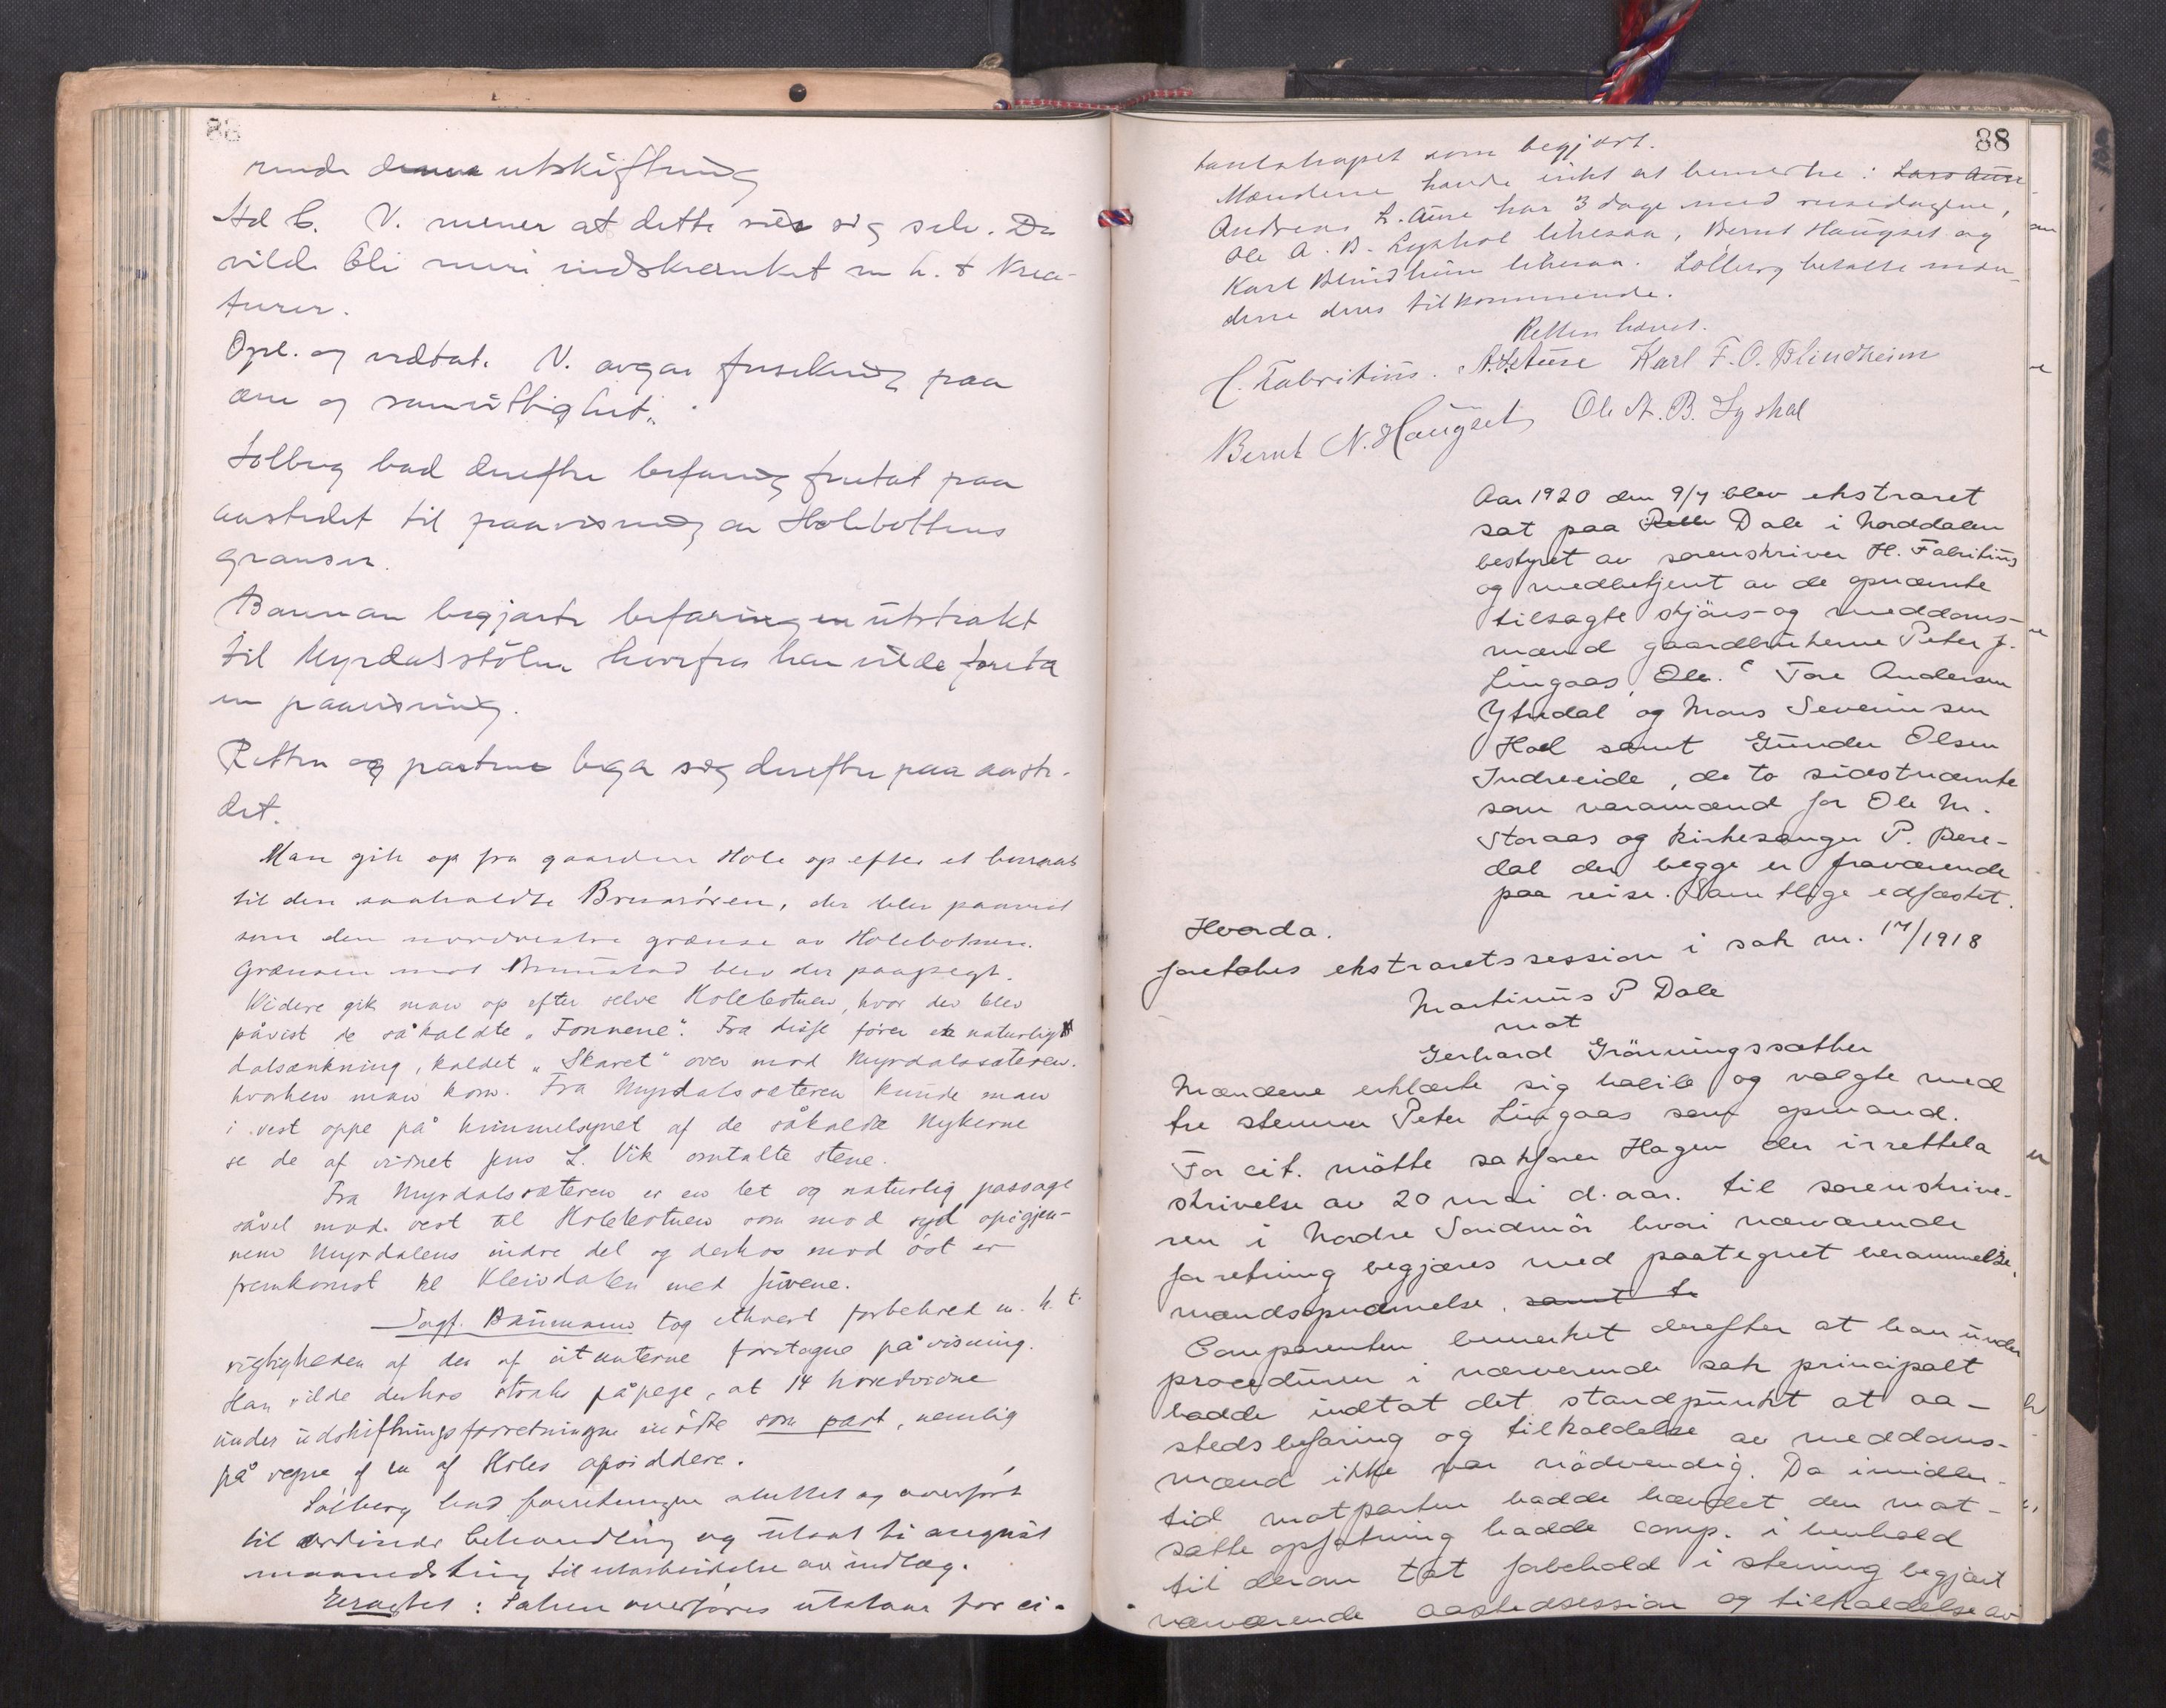 88
denne utskiftning
Ad 6. V. mener at dette sier sig selv. De
vilde bli mere indskrænket m. h. t Krea-
turer.
Opl. og vedtat. V. avgav forsikring paa
ære og samvittighet.
Solberg bad derefter befaring foretat paa
aastedet til paavisning av Holebottens
grænser.
Bauman begjærte befaringen utstrakt
til Myrdalsstölen hvorfra han vilde foreta
en paavisning.
Retten og parterne bega sig derefter paa aaste-
det.
Man gik op fra gaarden Hole op efter et
til den saakaldte Bruarören, der blev paavist
som den nordvestre grænse av Holebotnen.
Grænsen mot blev der paapegt.
Videre gik man op efter selve Holebotnen, hvor der blev
påvist de såkaldte "Fonnene". Fra disse förer en naturlig
dalsænkning, kaldet "Skaret" over mod Myrdalssæteren.
hvorhen man kom. Fra Myrdalssæteren kunde man
i vest oppe på himmelsynet af de såkaldte Nykerne
se de af vidnet Jens L. Vik omtalte stene.
Fra Myrdalssæteren er en let og naturlig passage
såvel mod vest til Holebotnen som mod syd opigjen-
nem Myrdalens indre del og derhos mod öst er
fremkomst til Kleivdalen med
Sagf. Baumann tog ethvert forbehold m. h. t.
rigtigheden af den af citanterne foretagne påvisning.
Han vilde derhos straks påpege, at 14 hovedvidne
under udskiftningsforretningen mödte som part, nemlig
på vegne af en af Holes opsiddere.
Solberg bad forretningen sluttet og overfört
til ordinær behandling og utsat til august
maanedsting til utarbeidelse av indlæg.
Eragtet: Saken overföres utsættes for ci-
88
tantskapet som begjært.
Mændene havde intet at bemerke: Lars Aure
Andreas L. Aure har 3 dage med reisedagene,
Ole A. B. Lyshol likesaa, Bernt Haugset og
Karl Blindheim likesaa. Solberg betalte mæn-
dene deres tilkommende.
Retten hævet.
H. Fabritius. A. L. Aure Karl F. O. Blindheim
Bernt N. Haugset Ole A. B. Lyshol
Aar 1920 den 9/7 blev ekstraret
sat paa Dale i Norddalen
bestyret av sorenskriver H. Fabritius
og medbetjent av de opnævnte
tilsagte skjöns- og meddoms-
mænd gaardbrukerne Peter J.
Lingaas, Ole. Tore Andersen
Ytredal og Mons Severinsen
Hoel samt Gunder Olsen
Indreeide, de to sidstnævnte
som varamænd for Ole M.
Storaas og kirkesanger P. Bere-
dal der begge er fraværende
paa reise. Samtlige edfæstet.
Hvorda.
foretokes ekstraretssession i sak nr. 17/1918
Martinus P Dale
mot
Gerhard Grönningssæther
Mændene erklærte sig habile og valgte med
tre stemmer Peter Lingaas som opmand.
For cit. mötte sakförer Hagen der irrettela
skrivelse av 20 mai d. aar. til sorenskrive-
ren i Nordre Söndmör hvori nærværende
forretning begjæres med paategnet berammelse,
mandsopnævnelse. samt
Comparenten bemerket derefter at han under
proceduren i nærværende sak principalt
hadde indtat det standpunkt at aa-
stedsbefaring og tilkaldelse av meddoms-
mænd ikke var nödvendig. Da imidler-
tid motparten hadde hævdet den mot-
satte opfatning hadde comp. i henhold
til derom tat forbehold i stevning begjært
nærværende aastedsession og tilkaldelse av